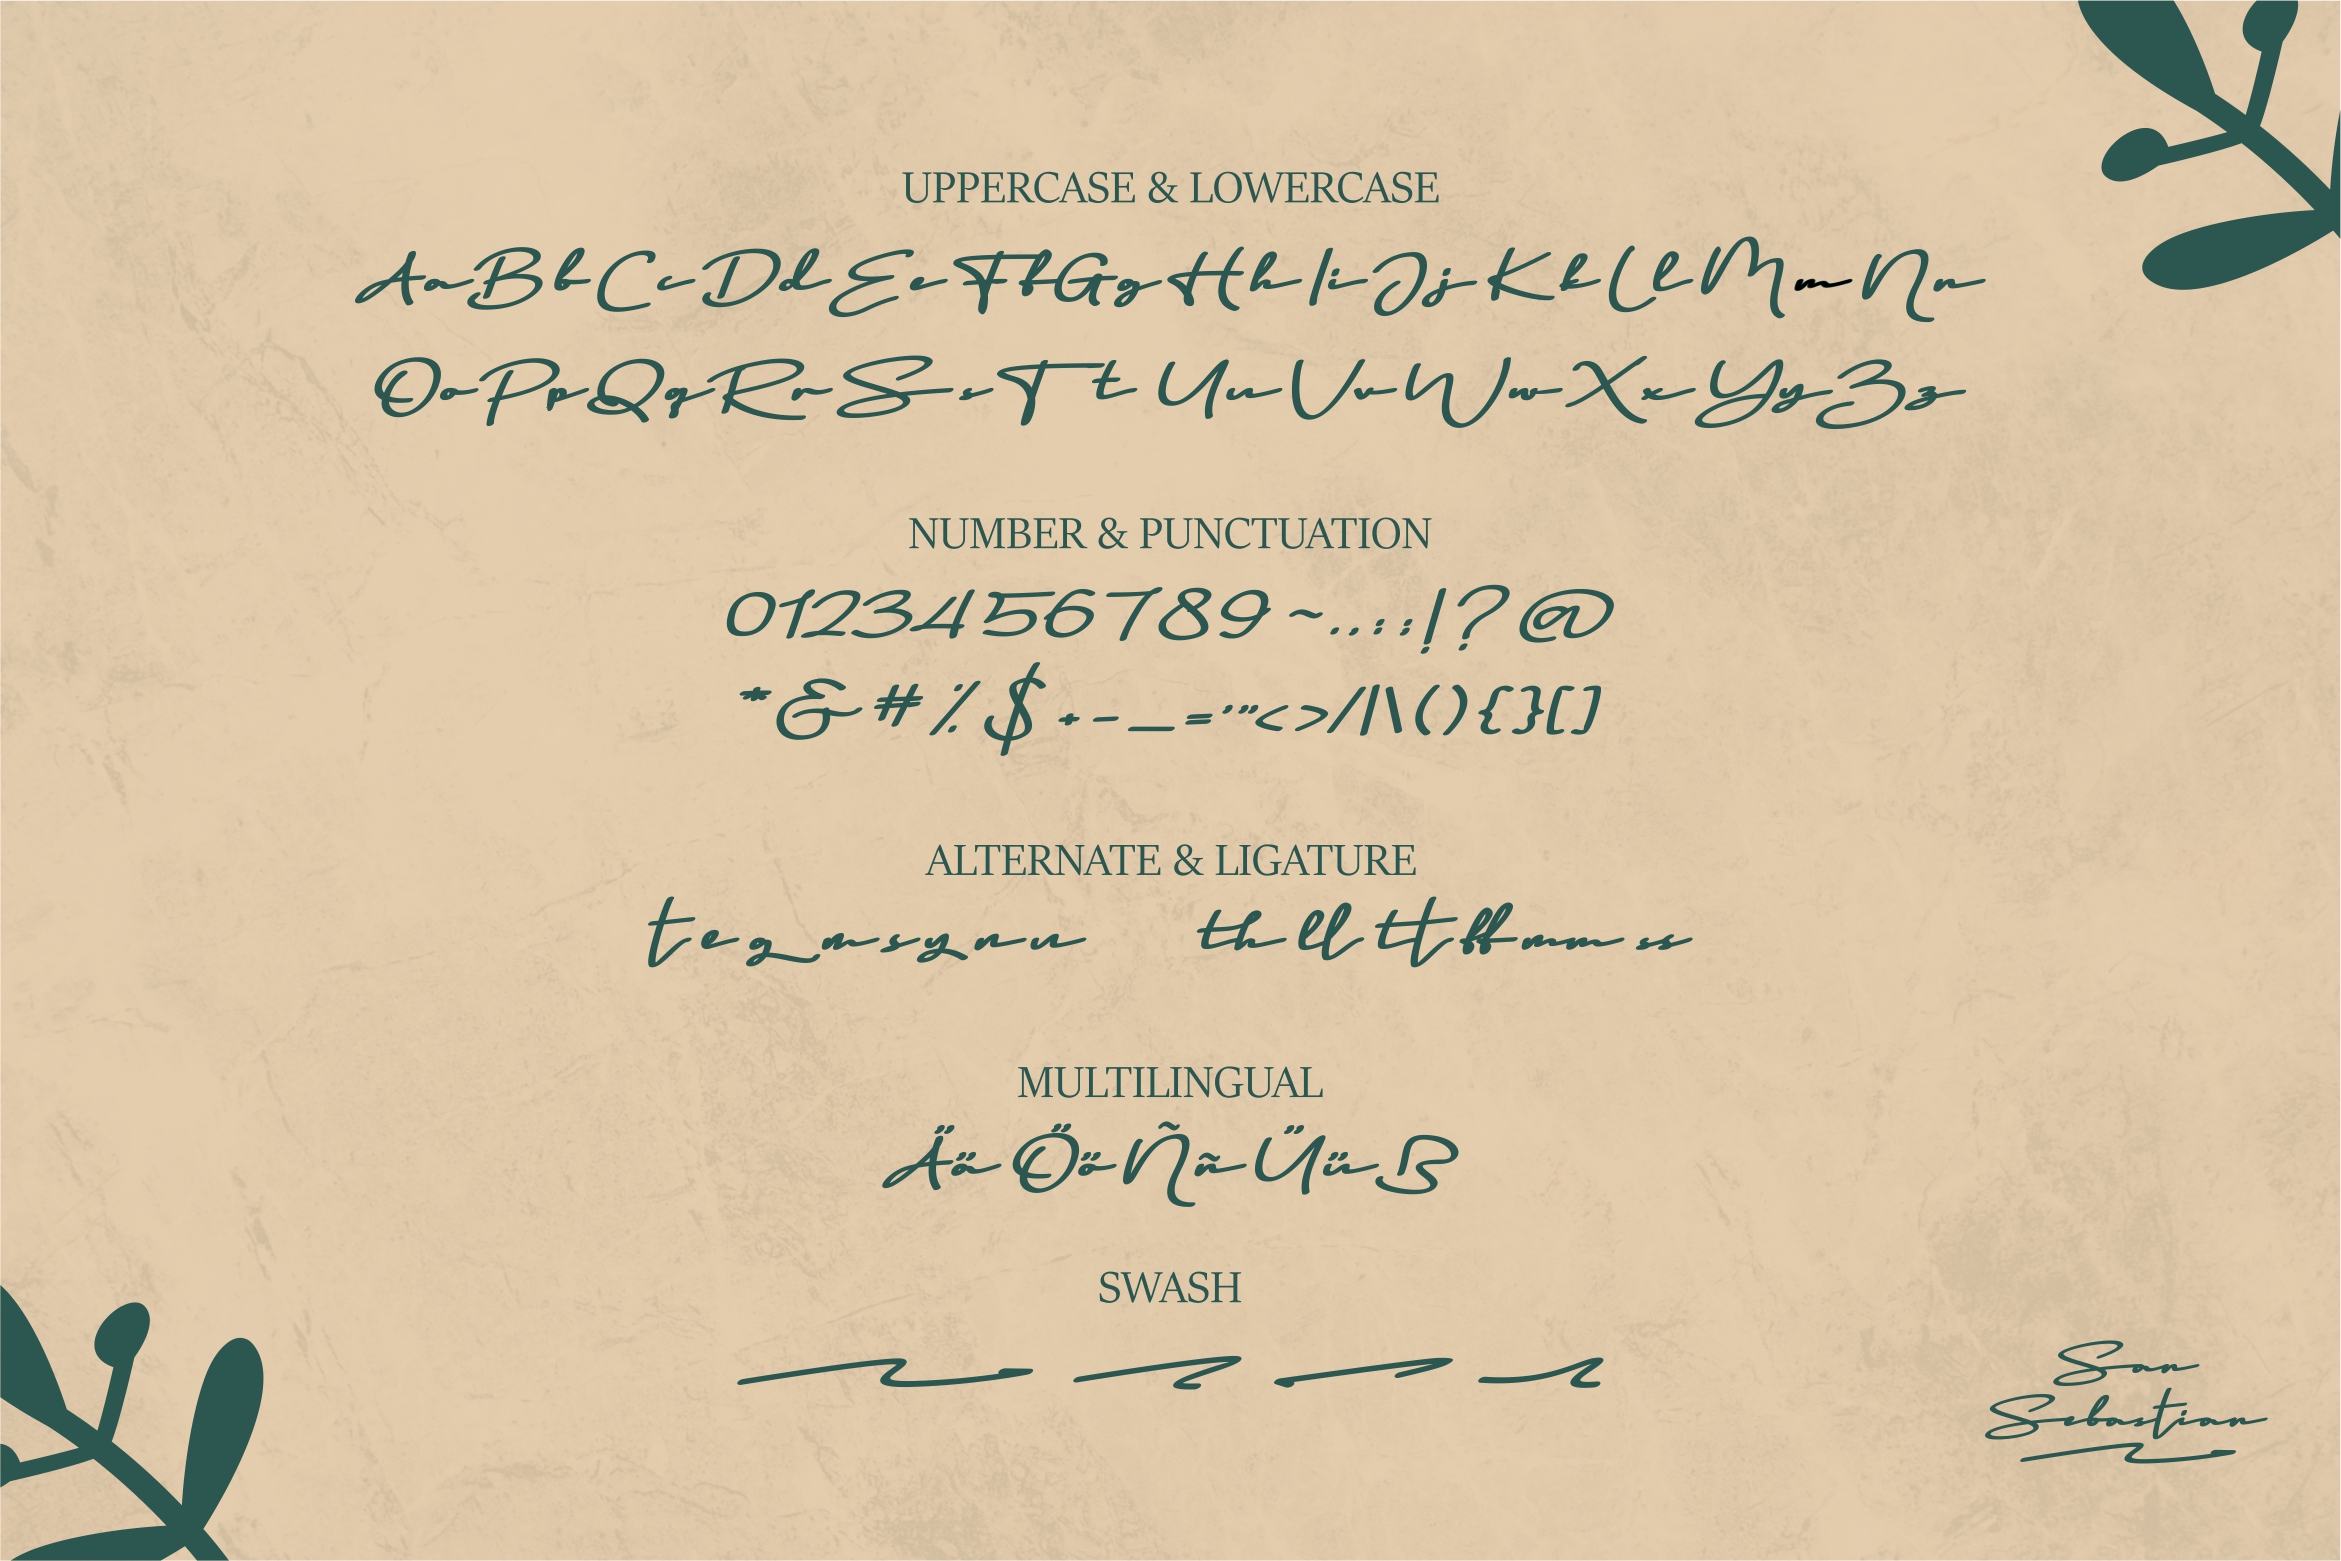 UPPERCASE & LOWERCASE
AaBbCcDdEeFfGgHhIiJjKkLlMmNn
OoPpQqRrSsTtUuVvWwXxYyZz
NUMBER & PUNCTUATION
0123456789~.,:;!?@
*&#%$+-_='"<>/|\(){}[]
ALTERNATE & LIGATURE
t e g m s y n u th ll tt ff mm ss
MULTILINGUAL
ÄäÖöÑñÜüß
SWASH
San
Sebastian